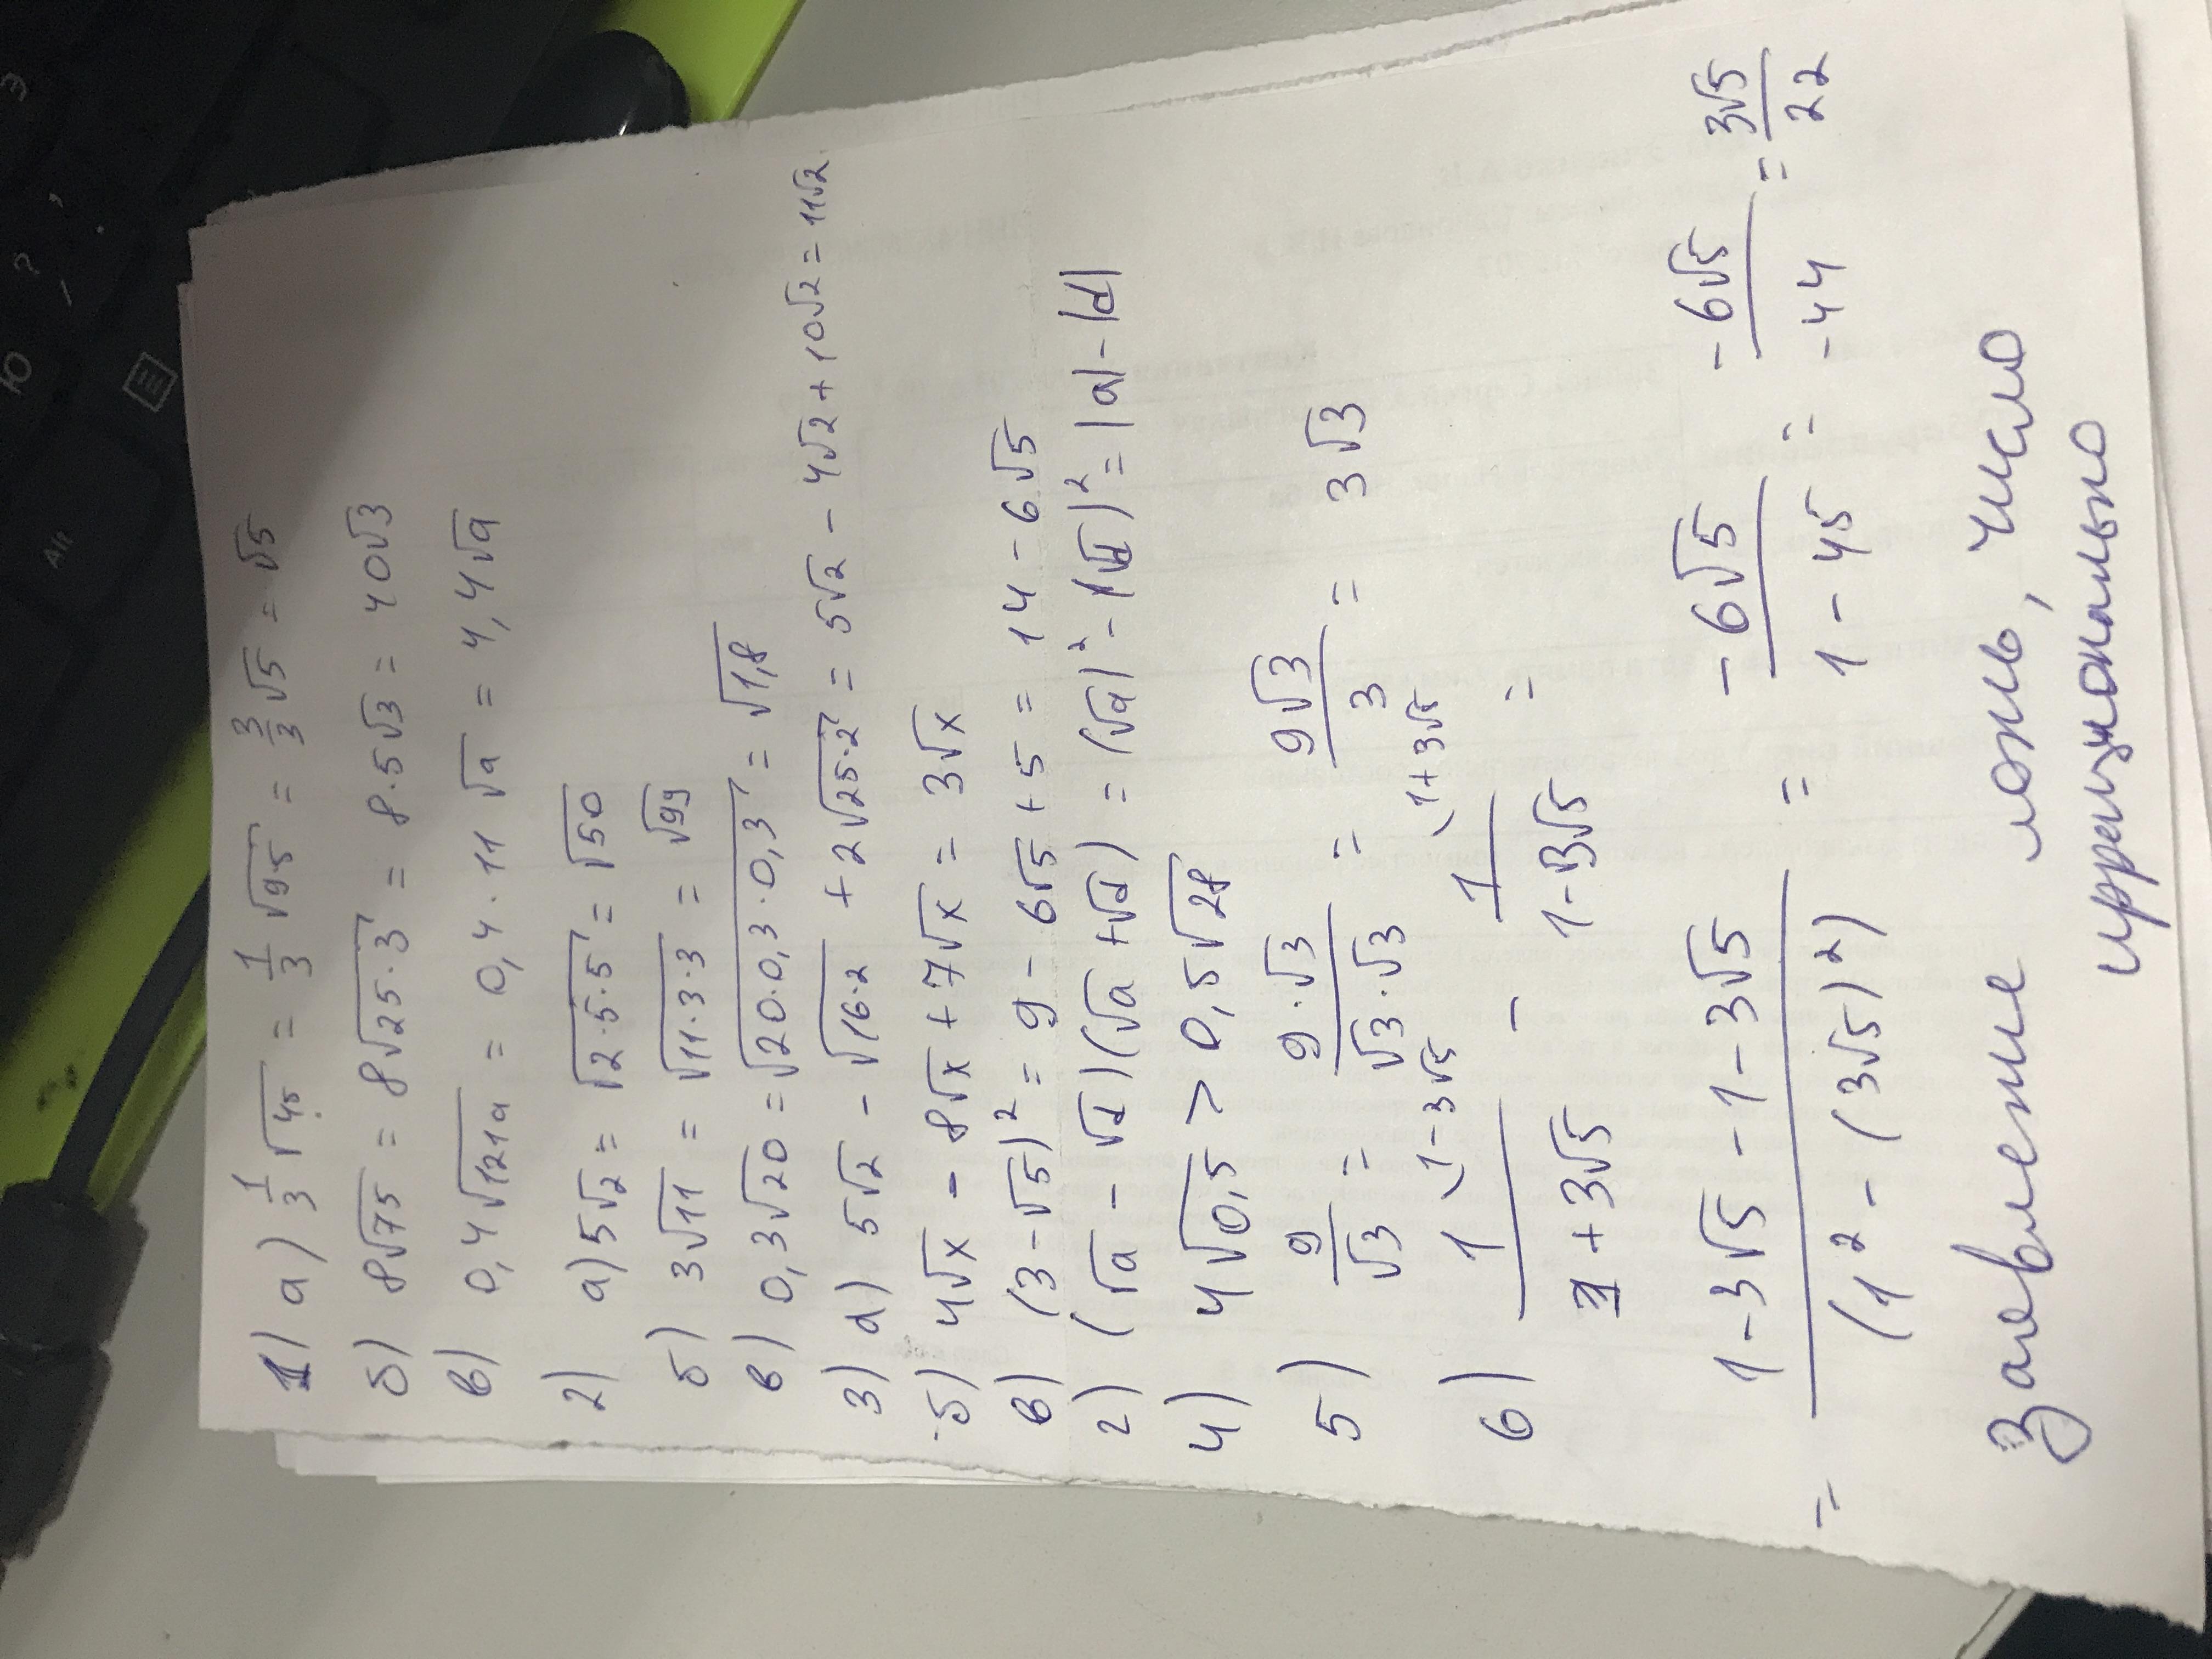 1) а) 1/3 √45 = 1/3 √9·5 = 3/3 √5 = √5
б) 8√75 = 8√25·3 = 8·5√3 = 40√3
в) 0,4√121a = 0,4·11 √a = 4,4√a
2) а) 5√2 = √2·5·5 = √50
б) 3√11 = √11·3·3 = √99
в) 0,3√20 = √20·0,3·0,3 = √1,8
3) а) 5√2 - √16·2 + 2√25·2 = 5√2 - 4√2 + 10√2 = 11√2
б) 4√x - 8√x + 7√x = 3√x
в) (3-√5)² = 9 - 6√5 + 5 = 14 - 6√5
г) (√a - √d)(√a + √d) = (√a)² - (√d)² = |a| - |d|
4) 4√0,5 > 0,5√28
5) 9/√3 = 9·√3/√3·√3 = 9√3/3 = 3√3
6) 1(1-3√5/1+3√5 - 1(1+3√5/1-3√5 =
= 1-3√5-1-3√5/(1²-(3√5)²) = -6√5/1-45 = -6√5/-44 = 3√5/22
Заевление ложь, число
иррационально